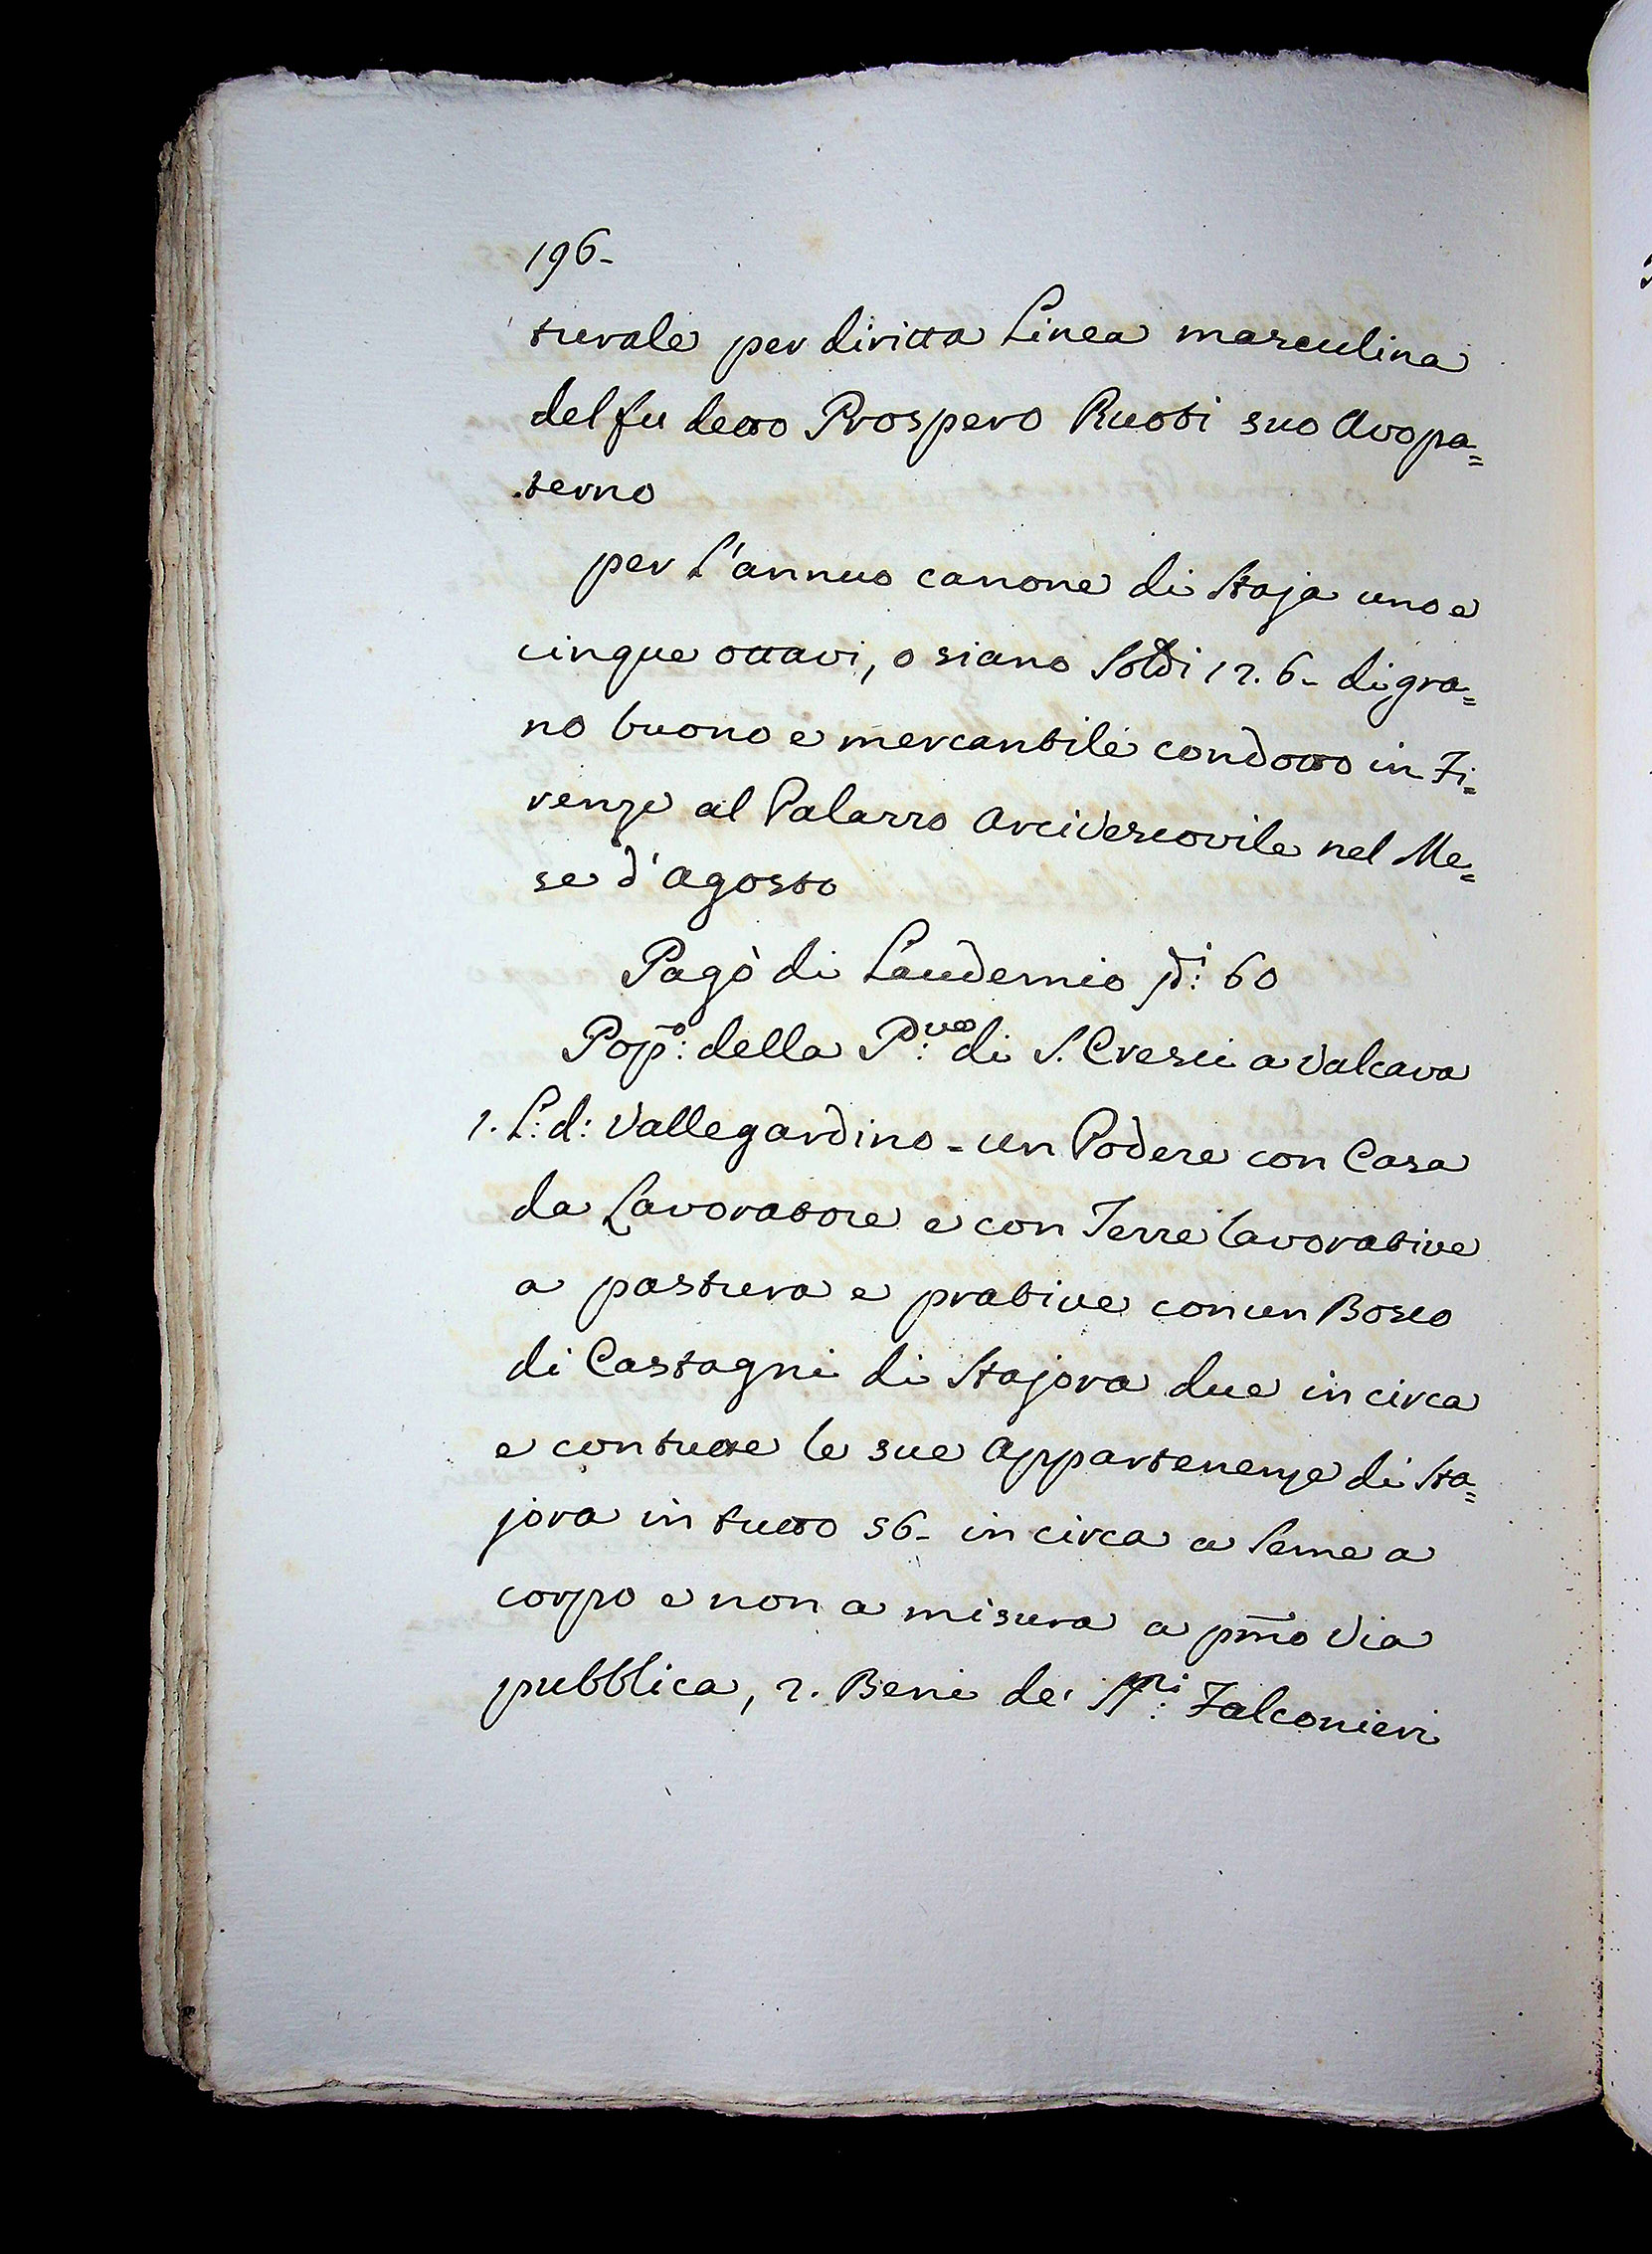 196-
turale per diritta Linea masculina
del fu detto Prospero Ruoti suo Avo pa=
terno
per L'annuo canone di Staja uno e
cinque ottavi, o siano Soldi 12. 6- di gra=
no buono e mercantile condotto in Fi=
renze al Palazzo Arcivescovile nel Me=
se d'Agosto
Pagò di Laudemio 60
Pop:º della P:ve di S. Cresci a Valcava
1. L: d: Vallegardino - un Podere con Casa
da Lavoratore e con Terre lavorative
a pastura e prative con un Bosco
di Castagni di Stajora due in circa
e con tutte le sue Appartenenze di Sta=
jora in tutto 56- in circa a Seme a
corpo e non a misura a pmo Via
pubblica, 2. Beni de' SS:ri Falconieri